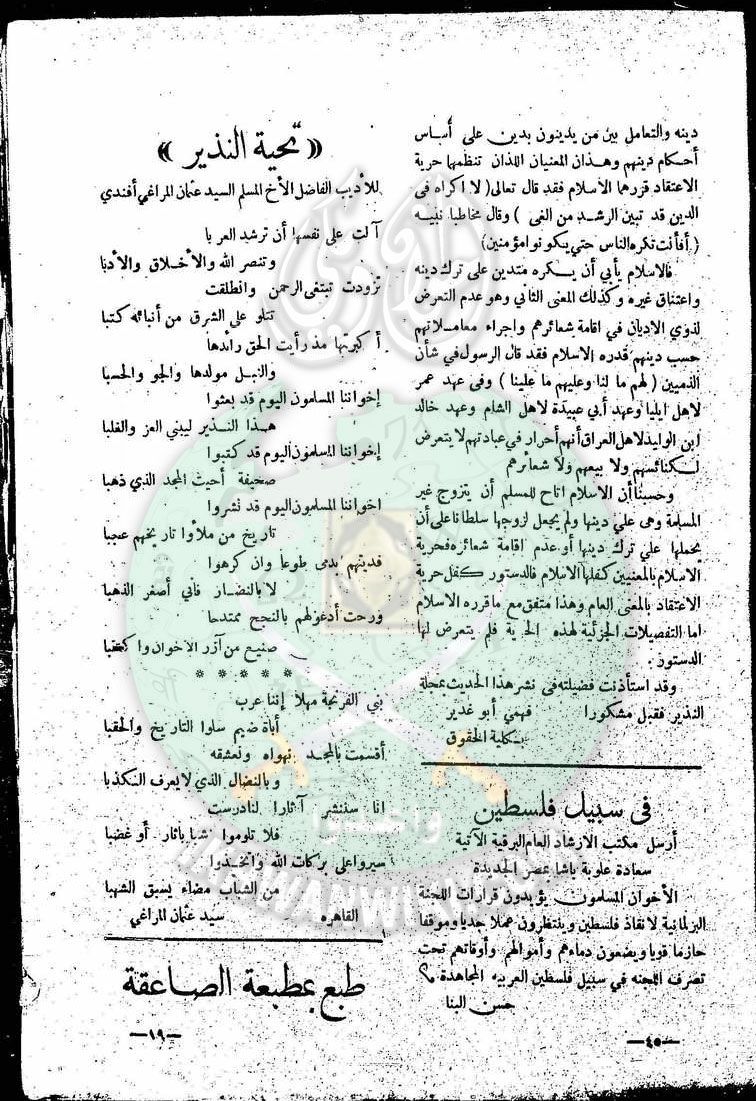 دينه والتعامل بين من يدينون بدين على أساس
أحكام دينهم وهذان المعنيان اللذان تنظمها حرية
الاعتقاد قررها الاسلام فقد قال تعالى ( لا اكراه فى
الدين قد تبين الرشد من الغى ) وقال مخاطبا نبيه
( أفأنت تكره الناس حتى يكونوا مؤمنين )
فالاسلام يأبي أن يكره متدين على ترك دينه
واعتناق غيره وكذلك المعنى الثاني وهو عدم التعرض
لذوي الاديان في اقامة شعائرهم واجراء معاملاتهم
حسب دينهم قدره الاسلام فقد قال الرسول في شأن
الذميين ( لهم ما لنا وعليهم ما علينا ) وفى عهد عمر
لاهل ايليا وعهد أبي عبيدة لاهل الشام وعهد خالد
ابن الوليد لاهل العراق أنهم أحرار في عبادتهم لا يتعرض
لكنائسهم ولا بيعهم ولا شعائرهم
وحسبنا أن الاسلام اتاح للمسلم أن يتزوج غير
المسلمة وهى علي دينها ولم يجعل لزوجها سلطانا على أن
يحملها علي ترك دينها أو عدم اقامة شعائره فحرية
الاسلام بالمعنيين كفلها الاسلام فالدستور كفل حرية
الاعتقاد بالمعنى العام وهذا متفق مع ما قرره الاسلام
اما التفصيلات الجزئية لهذه الحرية فلم يتعرض لها
الدستور .
وقد استأذنت فضيلته فى نشر هذا الحديث بمجلة
النذير فقبل مشكورا فهمي أبو غدير
بكلية الحقوق
فى سبيل فلسطين
أرسل مكتب الارشاد العام البرقية الآتية
سعادة علوبة باشا بمصر الجديدة
الأخوان المسلمون يؤيدون قرارات اللجنة
البرلمانية لانقاذ فلسطين وينتظرون عملا جديا وموقفا
حازما قويا ويضعون دماءهم وأموالهم وأوقاتهم تحت
تصرف اللجنه في سبيل فلسطين العربيه المجاهدة
حسن البنا
—٤٥—
« تحية النذير »
للأديب الفاضل الأخ المسلم السيد عثمان المراغي أفندي
آلت على نفسها أن ترشد العربا
وتنصر الله والأخلاق والأدبا
تزودت تبتغى الرحمن وانطلقت
تتلو على الشرق من أنبائه كتبا
أكبرتها مذ رأيت الحق رائدها
والنبل مولدها والجو والحسبا
إخواننا المسلمون اليوم قد بعثوا
هذا النذير ليبني العز والغلبا
إخواننا المسلمون اليوم قد كتبوا
صحيفة أحيت المجد الذي ذهبا
اخواننا المسلمون اليوم قد نشروا
تاريخ من ملأوا تاريخهم عجبا
فديتهم بدمى طوعا وان كرهوا
لا بالنضار فاني أصغر الذهبا
ورحت أدعو لهم بالنجح ممتدحا
صنيع من آزر الأخوان واكتتبا
* * * * *
بني الفرنجة مهلا إننا عرب
أباة ضيم سلوا التاريخ والحقبا
أقسمت بالمجد نهواه ونعشقه
وبالنضال الذي لا يعرف الكذبا
انا سننشر آثارا لنا درست
فلا تلوموا شبابا ثار أو غضبا
سيروا على بركات الله واتخذوا
من الشباب مضاء يسبق الشهبا
القاهره سيد عثمان المراغي
طبع بمطبعة الصاعقة
—١٩—
وأعدوا
IKHWANWIKI.COM